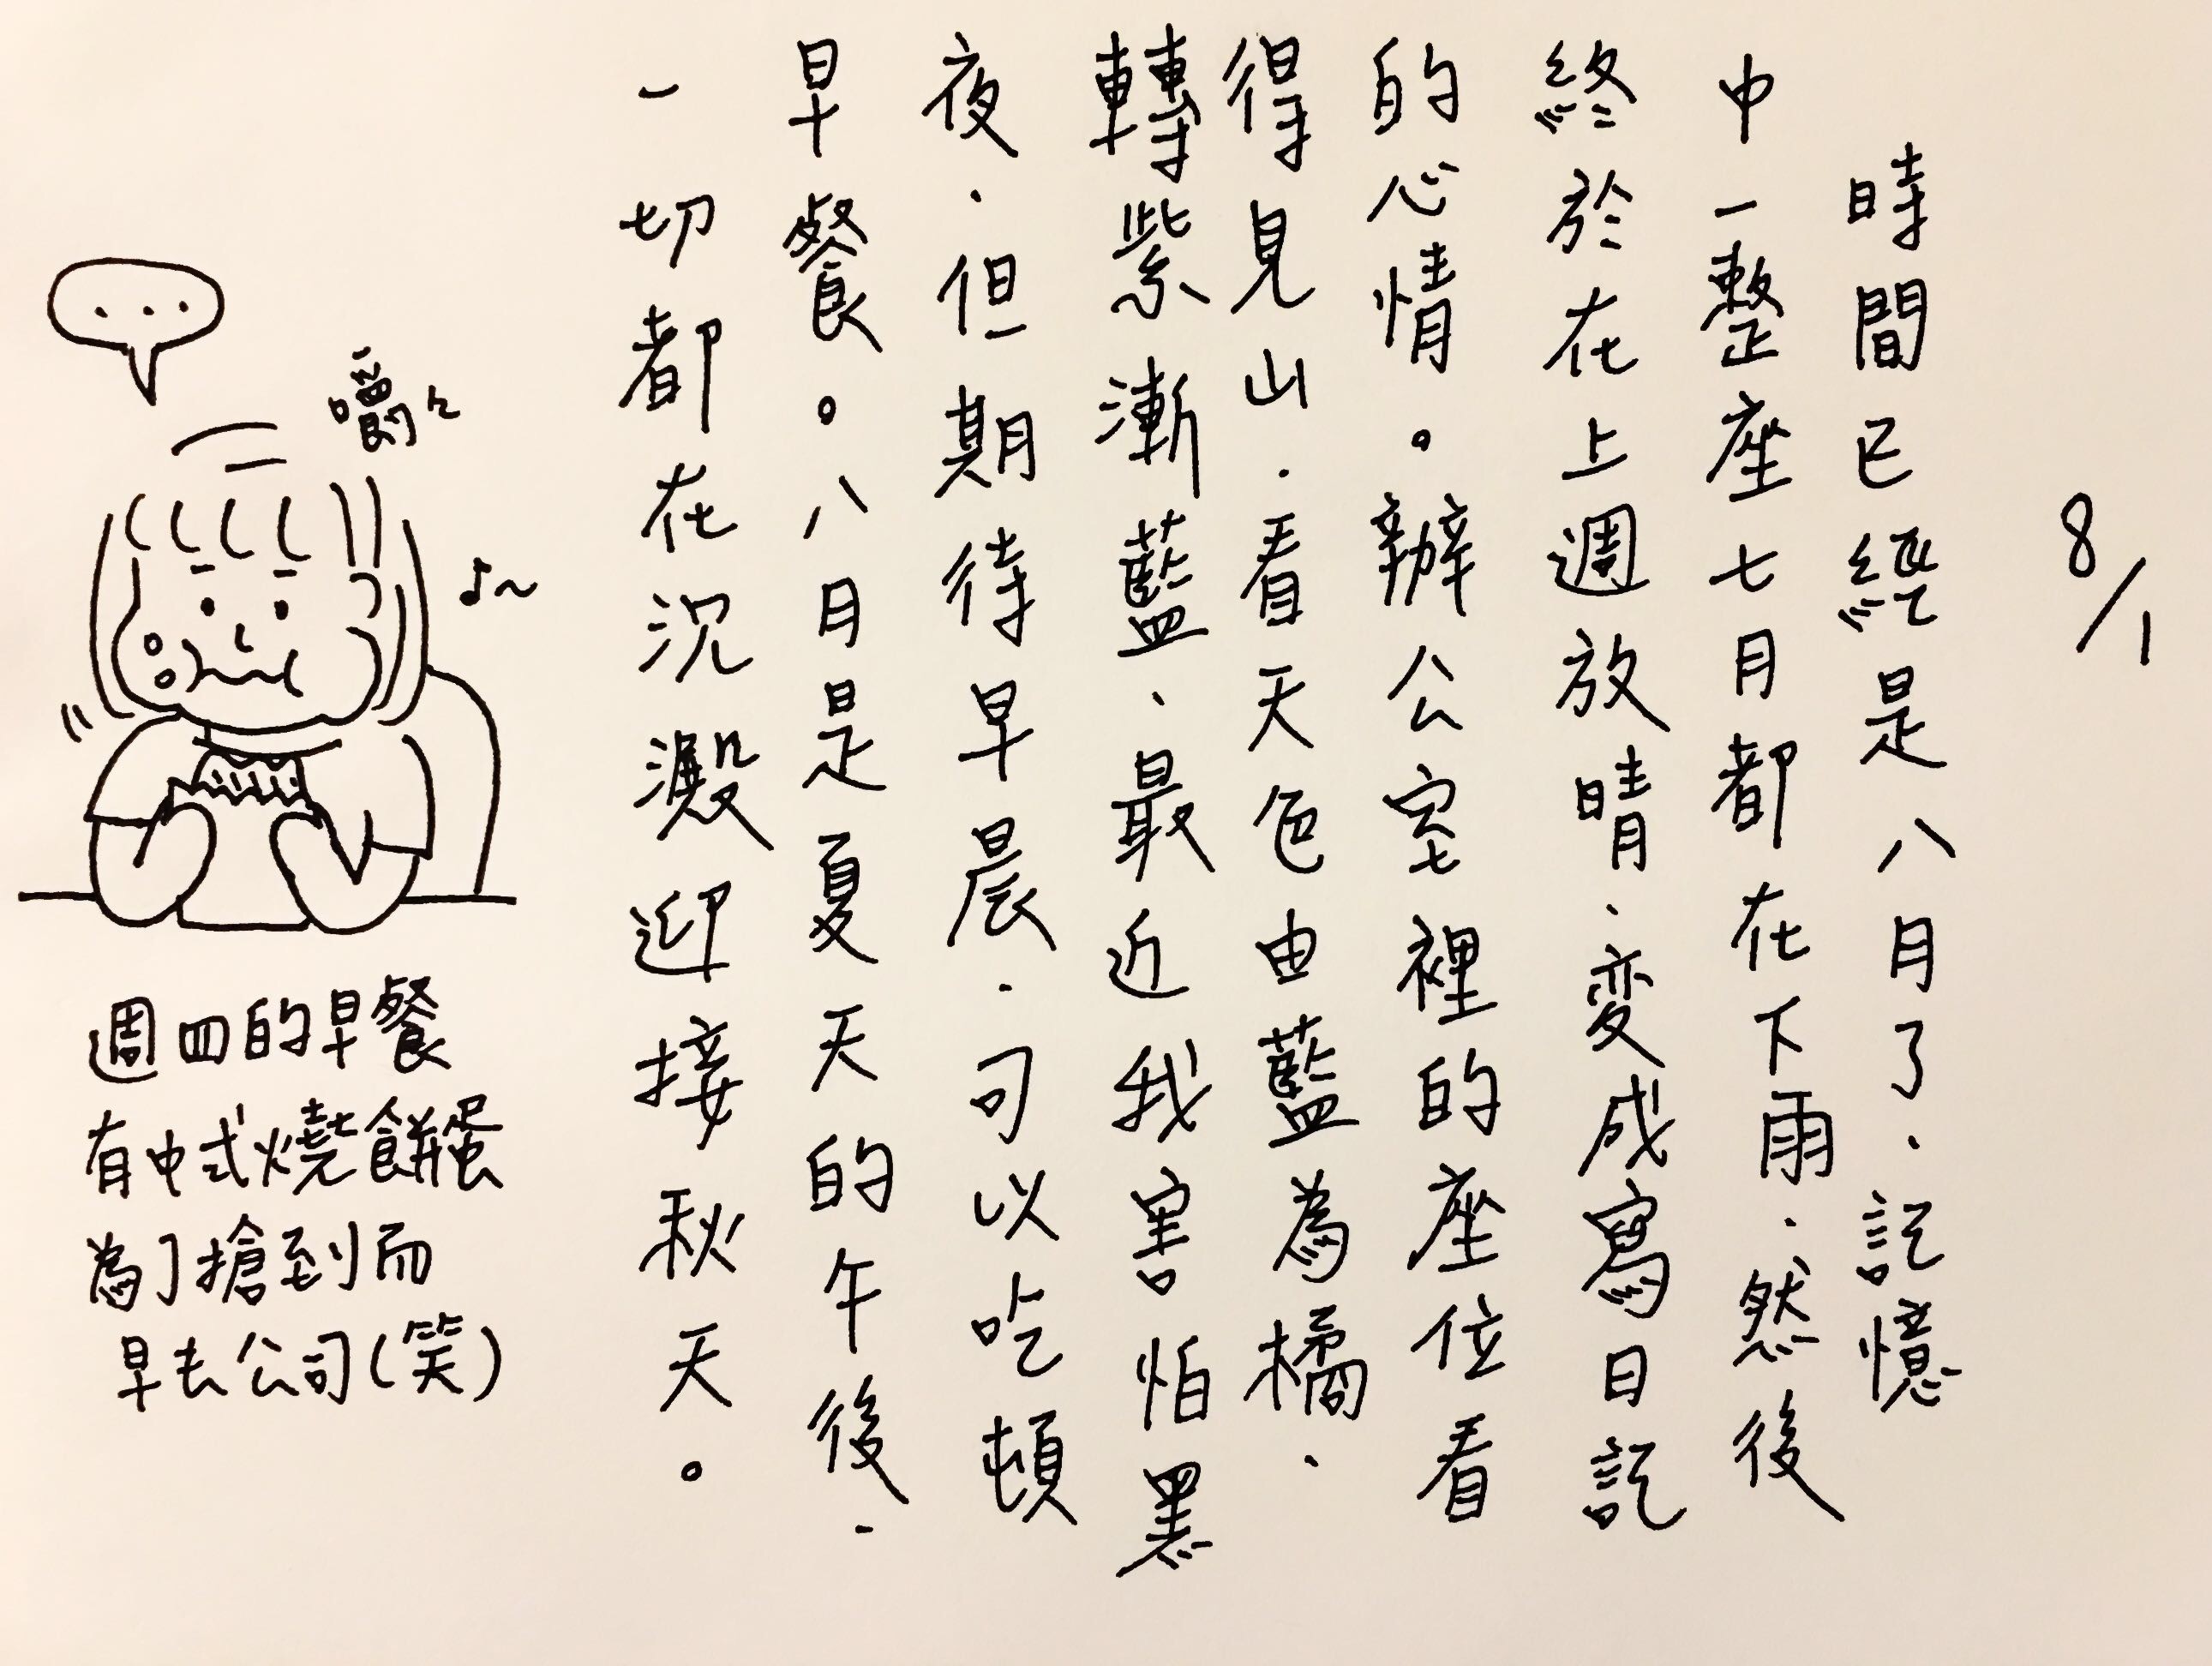 8/1
時間已經是八月了、記憶
中一整座七月都在下雨、然後
終於在上週放晴、变成寫日記
的心情。辦公室裡的座位看
得見山、看天色由藍為橘、
轉紫漸藍、最近我害怕黑
夜、但期待早晨、可以吃頓
早餐。八月是夏天的午後、
一切都在沉澱迎接秋天。
...
嚼々
♪~
週四的早餐
有中式燒餅蛋
為了搶到而
早去公司(笑)